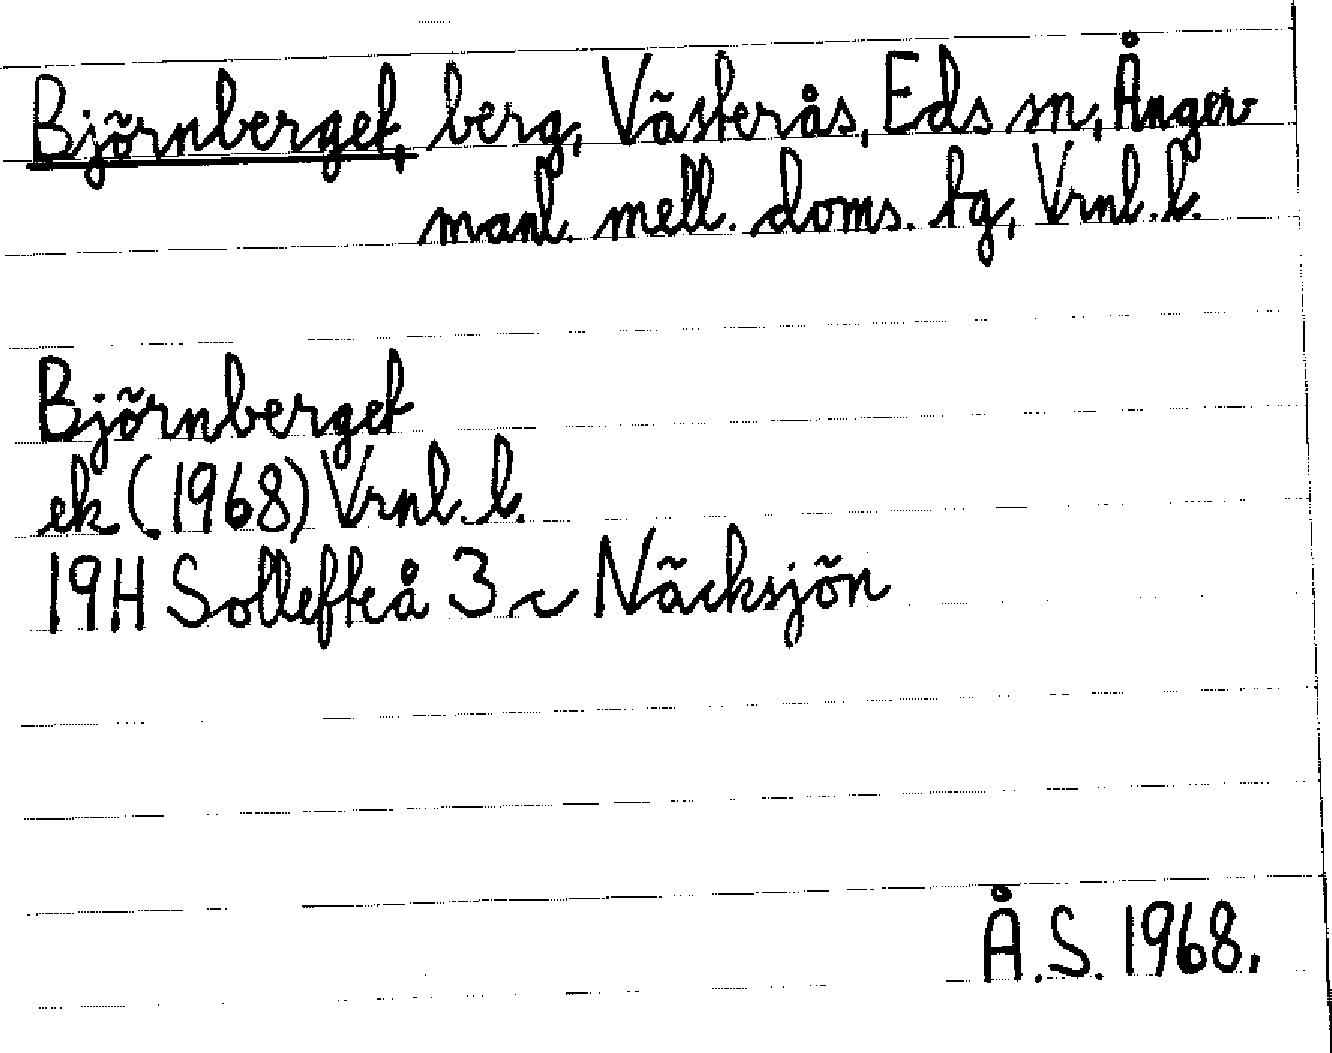 Björnberget, berg, Västerås, Eds sn, Ånger-
manl. mell. doms. tg, Vrnl. l.
Björnberget
ek (1968) Vrnl. l.
19H Sollefteå 3 c Näcksjön
Å.S. 1968.